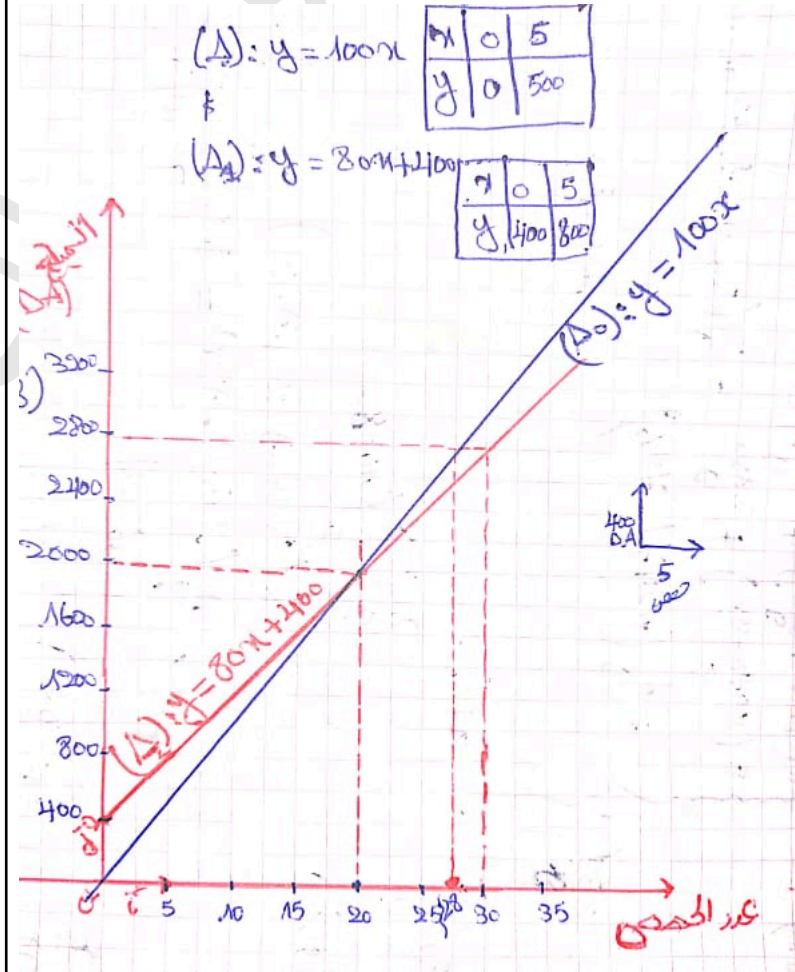 (Δ): y = 100x
x 0 5
y 0 500
(Δ₁): y = 80x+400
x 0 5
y 400 800
3200
2800
2400
2000
1600
1200
800
400
(Δ₀): y = 100x
(Δ₁): y = 80x+400
400
DA
5
حصص
0 5 10 15 20 25 28 30 35
عدد الحصص